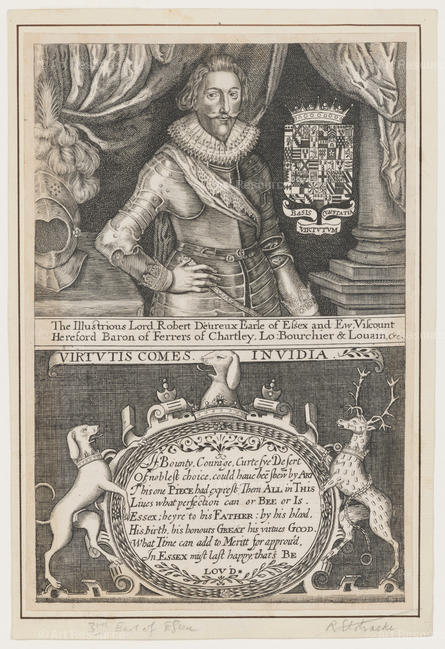 BASIS
CONSTATIA
VIRTVTVM
The Illustrious Lord Robert Deùreux Earle of Essex and Ew. Viscount
Hereford Baron of Ferrers of Chartley, Lo: Bourchier & Louain, &c.
VIRTVTIS COMES. INVIDIA.
If Bounty, Courage, Curtesye Desert
Of noblest choice, could haue beē shew'n by Art
This one PIECE had exprest Them ALL in THIS
Liues what perfection can or BEE or IS.
ESSEX; heyre to his FATHER: by his blood,
His birth, his honours GREAT his virtues GOOD.
What Time can add to Meritt for approu'd,
In ESSEX must last happy; that's BE
LOV'D.
3rd Earl of Essex
R. Elstracke